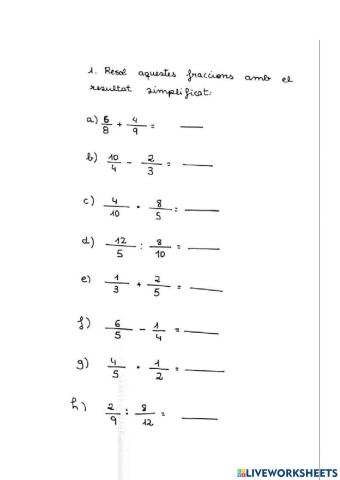 1. Resol aquestes fraccions amb el
resultat simplificat:
a) 6/8 + 4/9 = ___
b) 10/4 - 2/3 = ___
c) 4/10 · 8/5 = ___
d) 12/5 : 8/10 = ___
e) 1/3 + 2/5 = ___
f) 6/5 - 1/4 = ___
g) 4/5 · 1/2 = ___
h) 2/9 : 8/12 = ___
LIVEWORKSHEETS